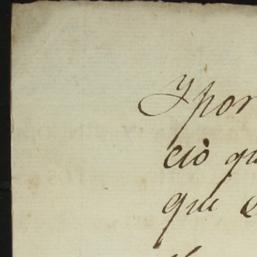 Ypor
ciò qu
qui